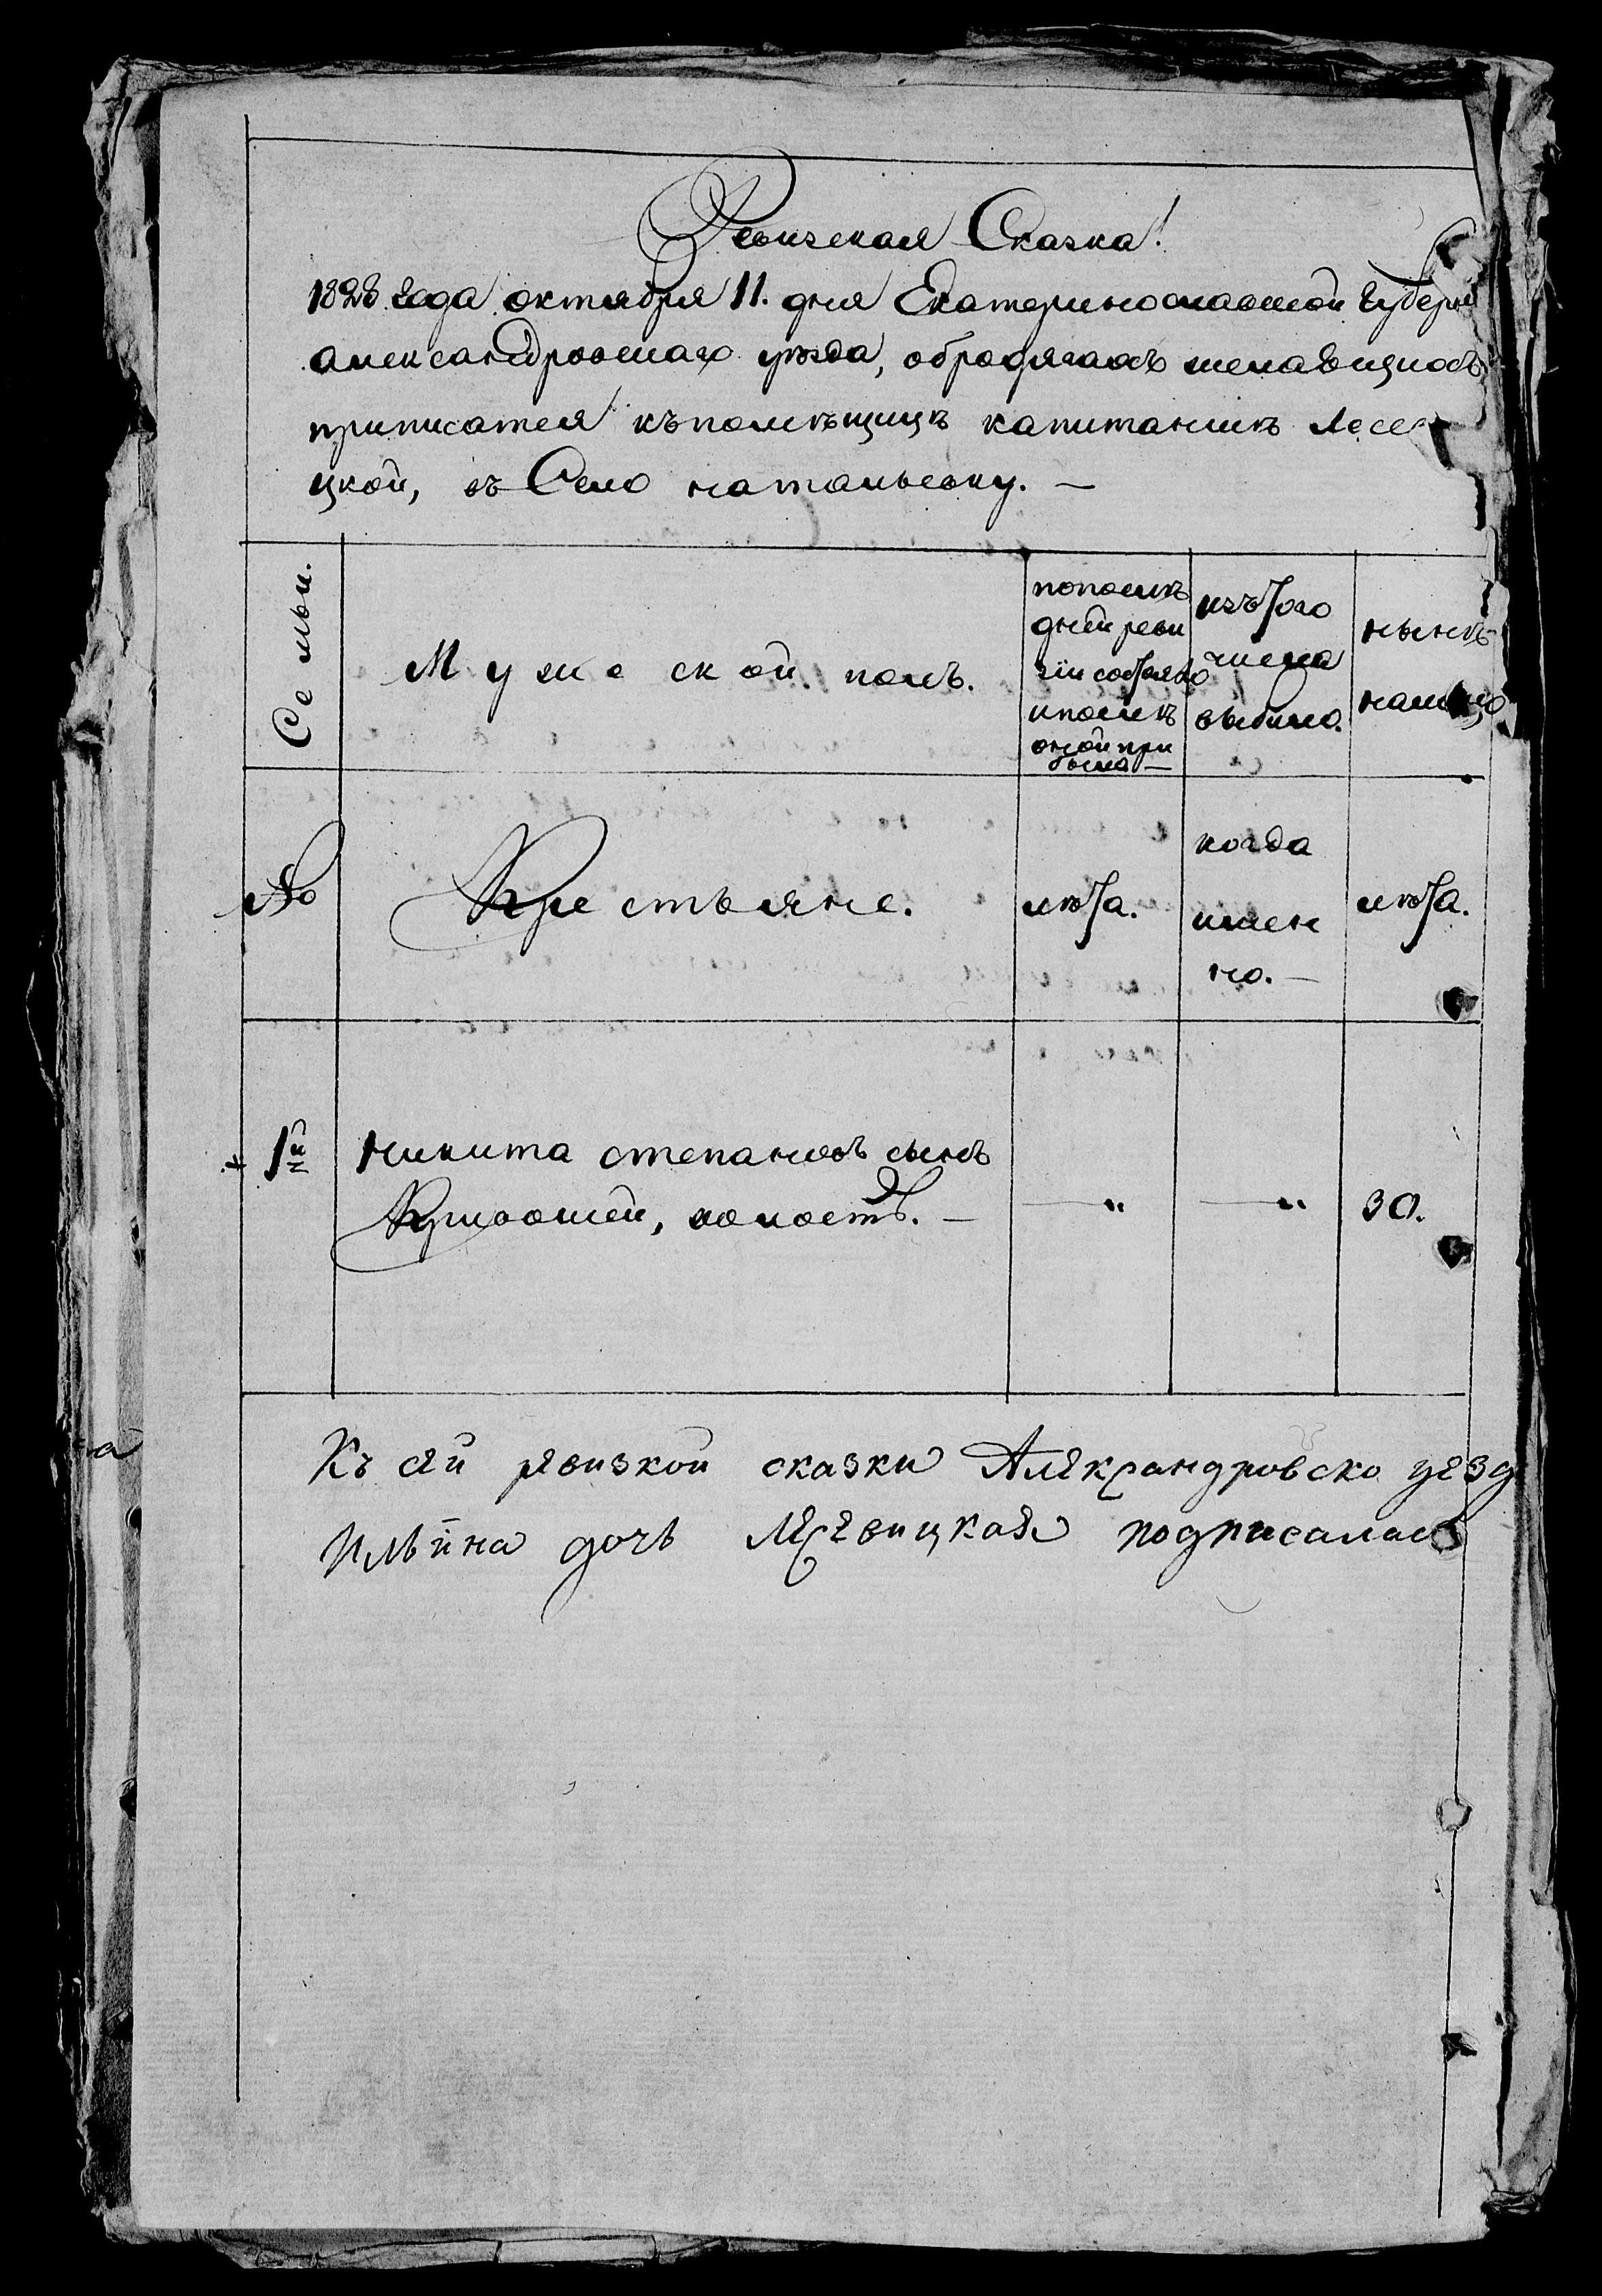 Ревизская Сказка!
1828 года октября 11. дня Екатеринославской губерни
александровскаго уезда, обродягахъ желающихъ
приписатся къ помѣщицѣ капитаншѣ Лесе
цкой, въ Село натальевку. —
Семьи.
Мужеской полъ.
попослѣ
дней реви
зіи состояло
и послѣ
оной при
было —
изътого
числа
выбыло.
нынѣ
налицо
№
Крестьяне.
лѣта.
когда
имен
но. —
лѣта.
1й
никита степановъ сынъ
Кривошей, холостъ. —
— "
— "
30.
Къ сей ревизкой сказки Александровско уезд
Ильина дочь Лесевицкая подписалась